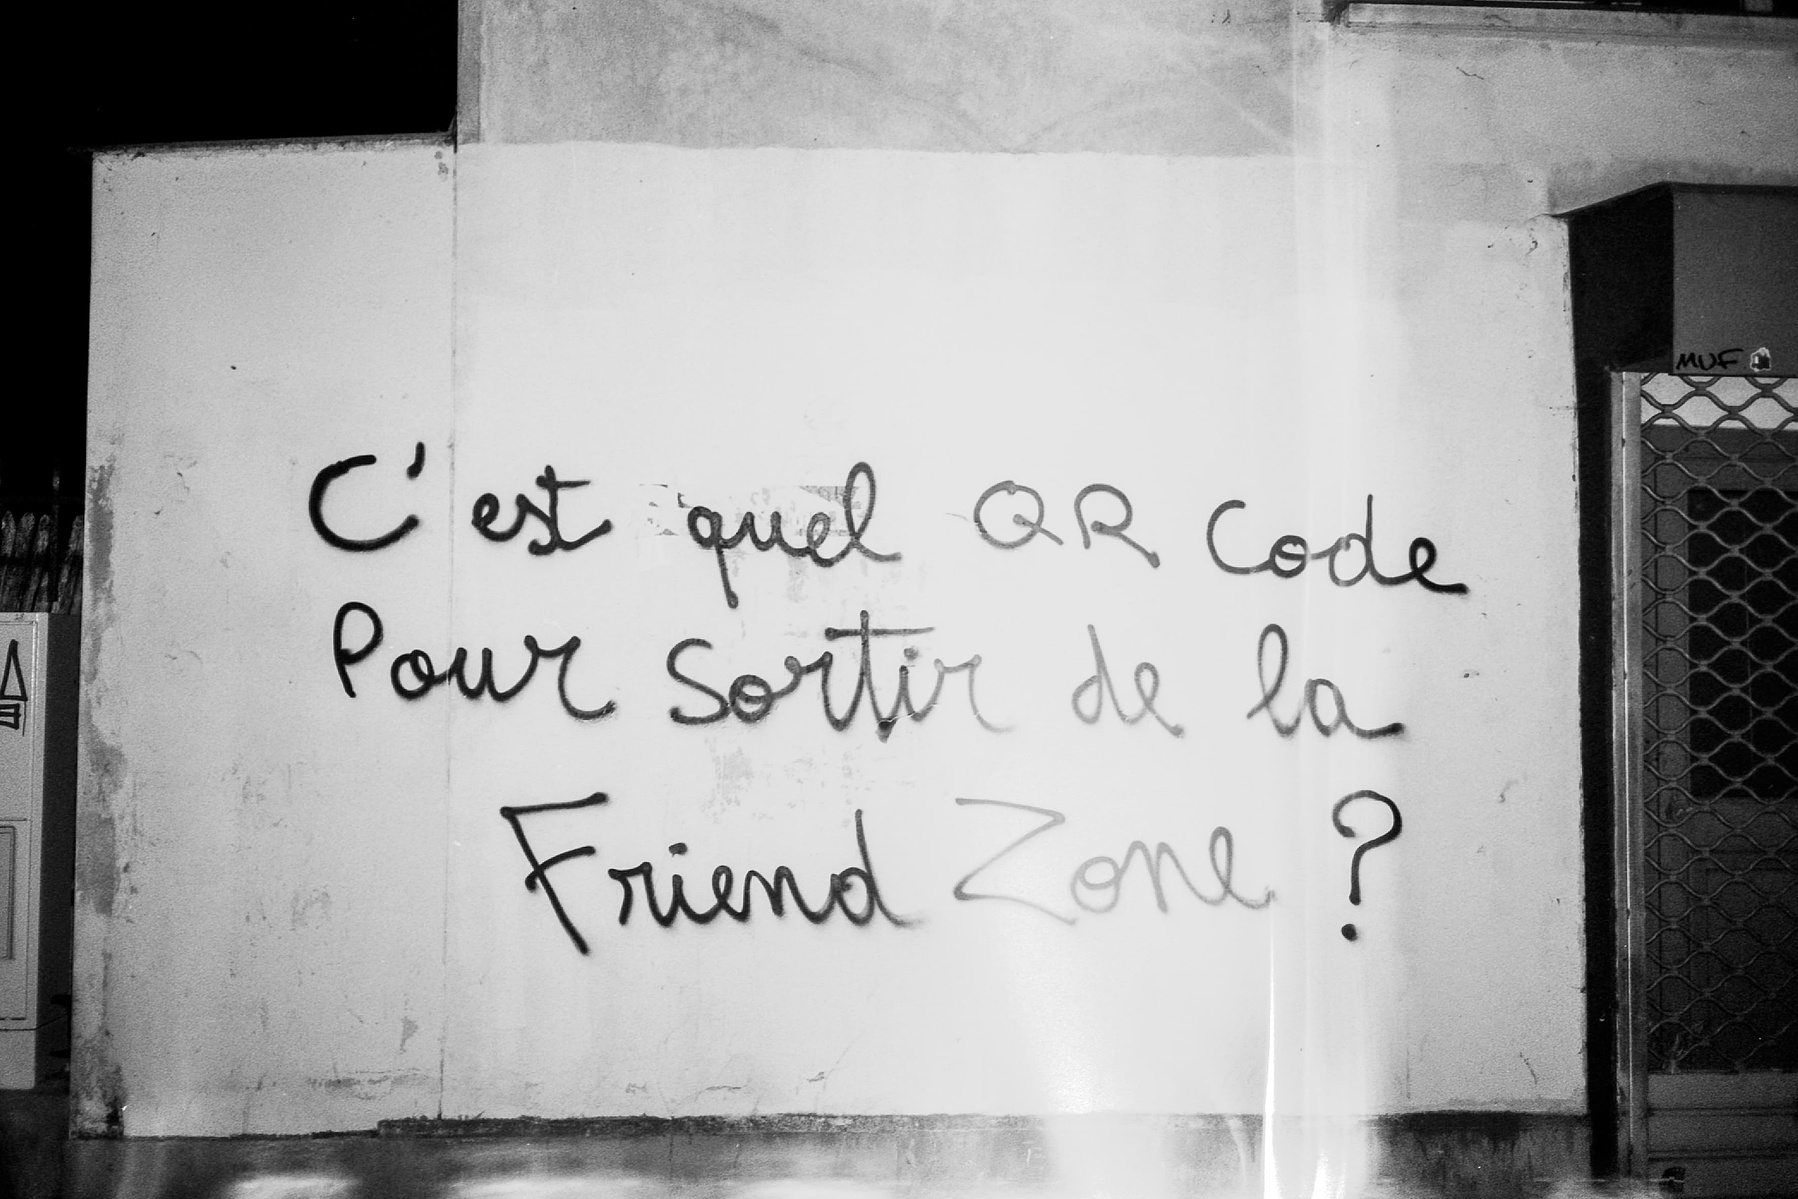 C'est quel QR Code
Pour Sortir de la
Friend Zone ?
MUF